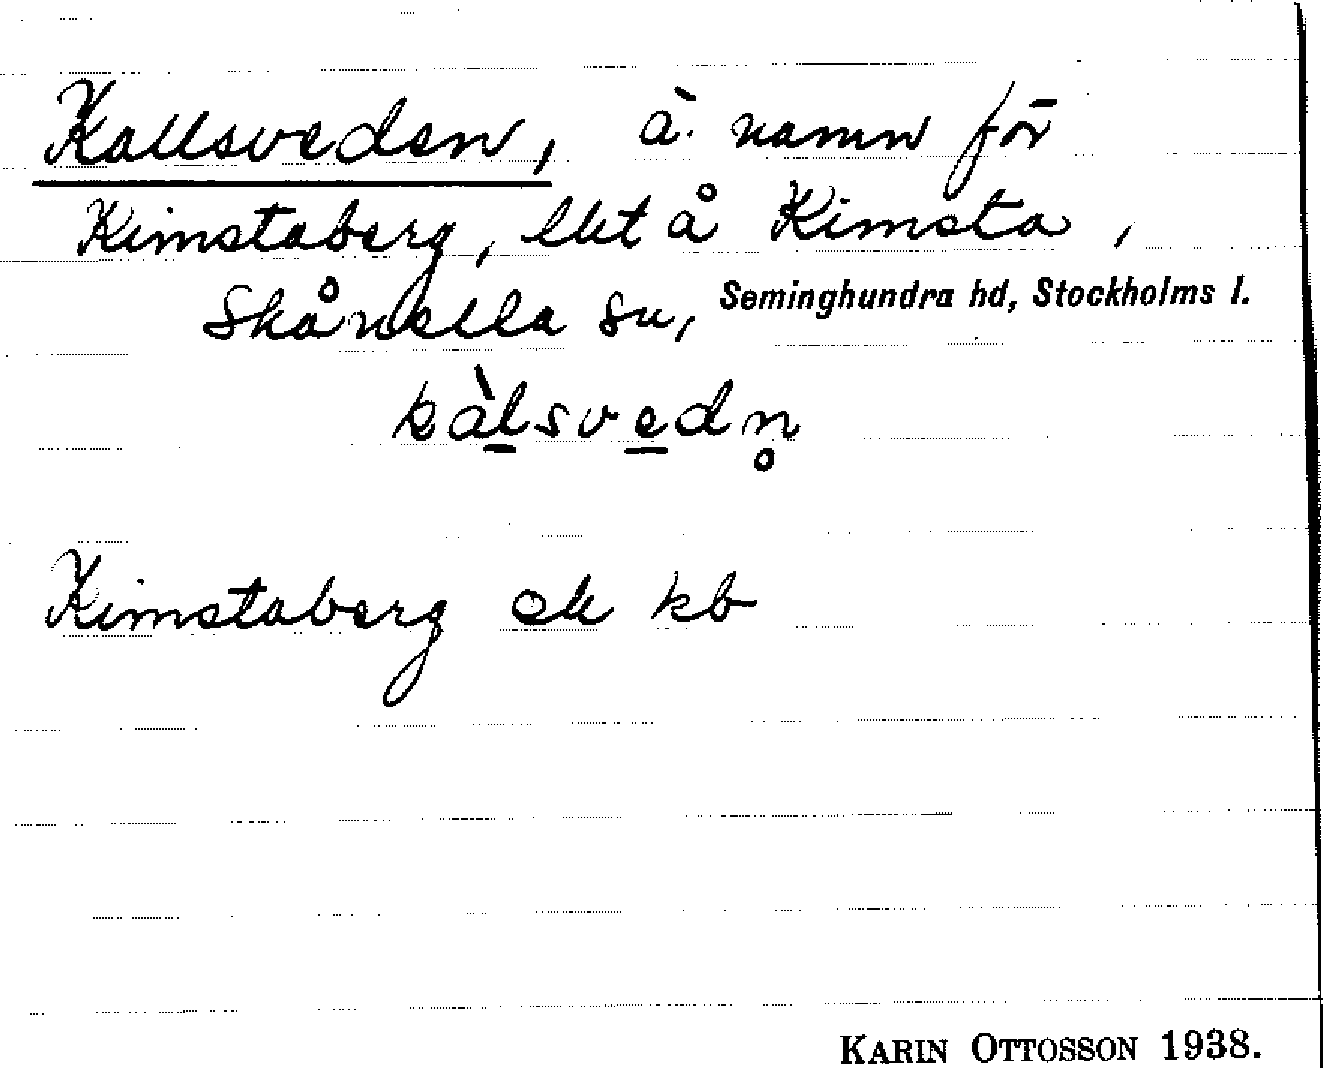 Kallsveden, ä. namn för
Kimstaberg, lht å Kimsta,
Skånella sn, Seminghundra hd, Stockholms l.
kàlsvedn̥
Kimstaberg ek kb
KARIN OTTOSSON 1938.